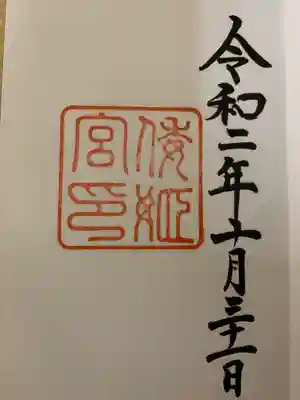 令和二年十月三十一日
倭姫
宮印